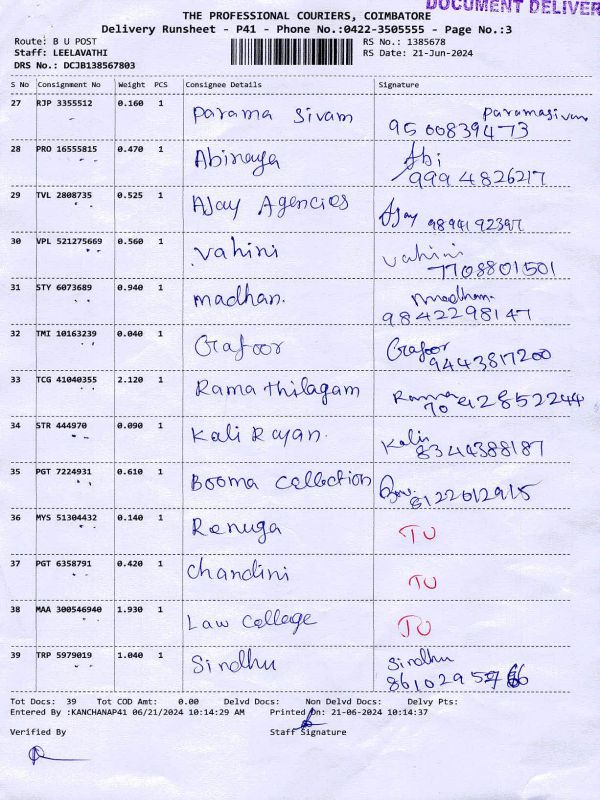 DOCUMENT DELIVER
THE PROFESSIONAL COURIERS, COIMBATORE
Delivery Runsheet - P41 - Phone No.:0422-3505555 - Page No.:3
Route: B U POST RS No.: 1385678
Staff: LEELAVATHI RS Date: 21-Jun-2024
DRS No.: DCJB138567803
S No Consignment No Weight PCS Consignee Details Signature
27 RJP 3355512 0.160 1 Parama Sivam Paramasivam
9500839473
28 PRO 16555815 0.470 1 Abinaya Abi
9994826217
29 TVL 2808735 0.525 1 AJay Agencies AJay 9894192397
30 VPL 521275669 0.560 1 Vahini Vahini
7708801501
31 STY 6073689 0.940 1 madhan. madhan.
9842298147
32 TMI 10163239 0.040 1 Gafoor Gafoor
9443817200
33 TCG 41040355 2.120 1 Rama thilagam Rama
34 STR 444970 0.090 1 Kali Rayan. Kali
8344388187
35 PGT 7224931 0.610 1 Booma Collection
8122012915
36 MYS 51304432 0.140 1 Renuga TU
37 PGT 6358791 0.420 1 Chandini TU
38 MAA 300546940 1.930 1 Law College TU
39 TRP 5979019 1.040 1 Sindhu Sindhu
Tot Docs: 39 Tot COD Amt: 0.00 Delvd Docs: Non Delvd Docs: Delvy Pts:
Entered By :KANCHANAP41 06/21/2024 10:14:29 AM Printed On: 21-06-2024 10:14:37
Verified By Staff Signature